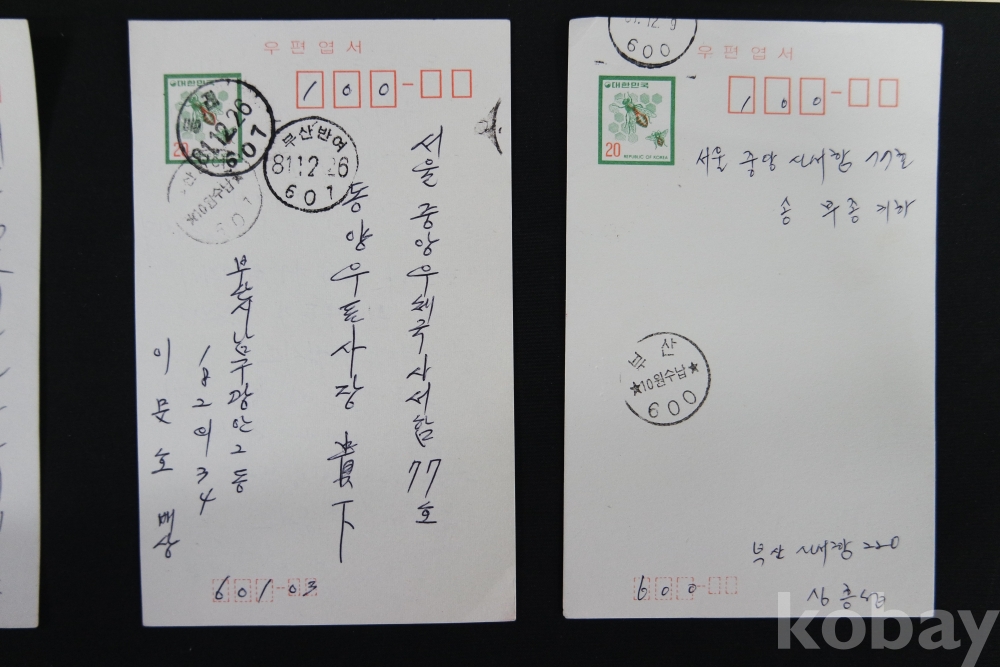 우편엽서
대한민국
20
100-
81.12.26
601
부산반여
81.12.26
601
★10원수납★
601
서울 중앙우체국사서함 77호
동양우표사장 貴下
부산시 남구 광안2동
182의34
이문호 배상
601-03
81.12.9
600
우편엽서
대한민국
20
REPUBLIC OF KOREA
100-
서울 중앙 사서함 77호
송 부종 귀하
부산
★10원수납★
600
부산 사서함 220
600-
kobay